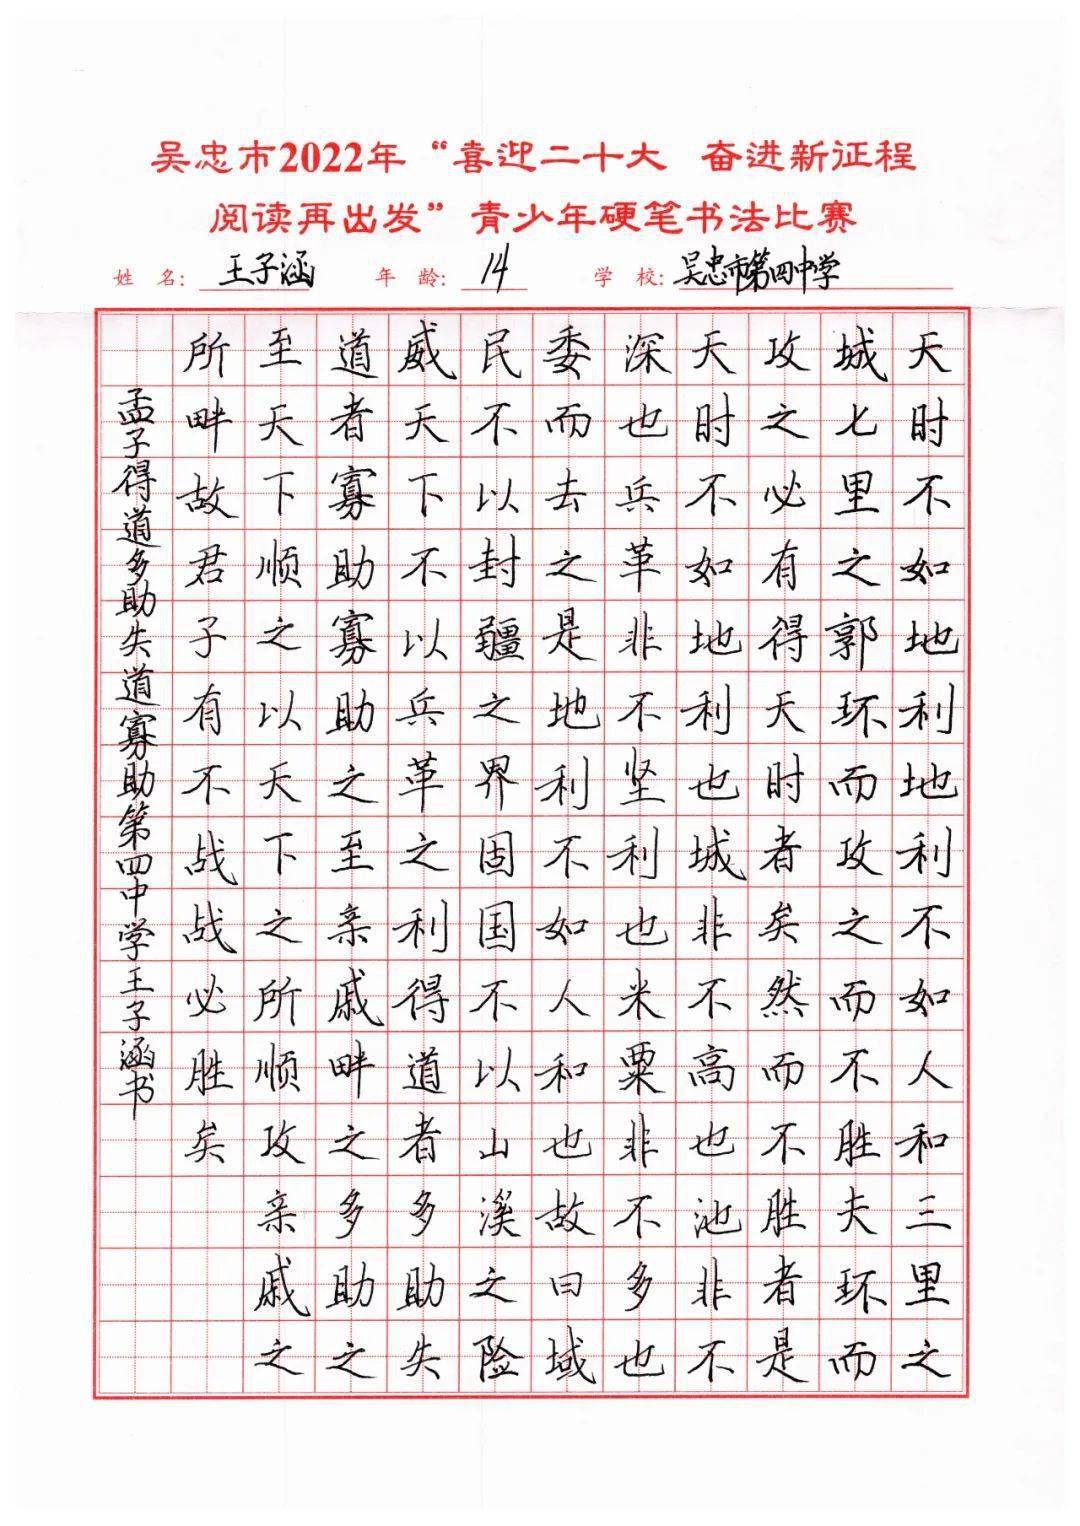 吴忠市2022年“喜迎二十大 奋进新征程
阅读再出发”青少年硬笔书法比赛
姓 名: 王子涵 年 龄: 14 学 校: 吴忠市第四中学
天时不如地利地利不如人和三里之
城七里之郭环而攻之而不胜夫环而
攻之必有得天时者矣然而不胜者是
天时不如地利也城非不高也池非不
深也兵革非不坚利也米粟非不多也
委而去之是地利不如人和也故曰域
民不以封疆之界固国不以山溪之险
威天下不以兵革之利得道者多助失
道者寡助寡助之至亲戚畔之多助之
至天下顺之以天下之所顺攻亲戚之
所畔故君子有不战战必胜矣
孟子得道多助失道寡助第四中学王子涵书